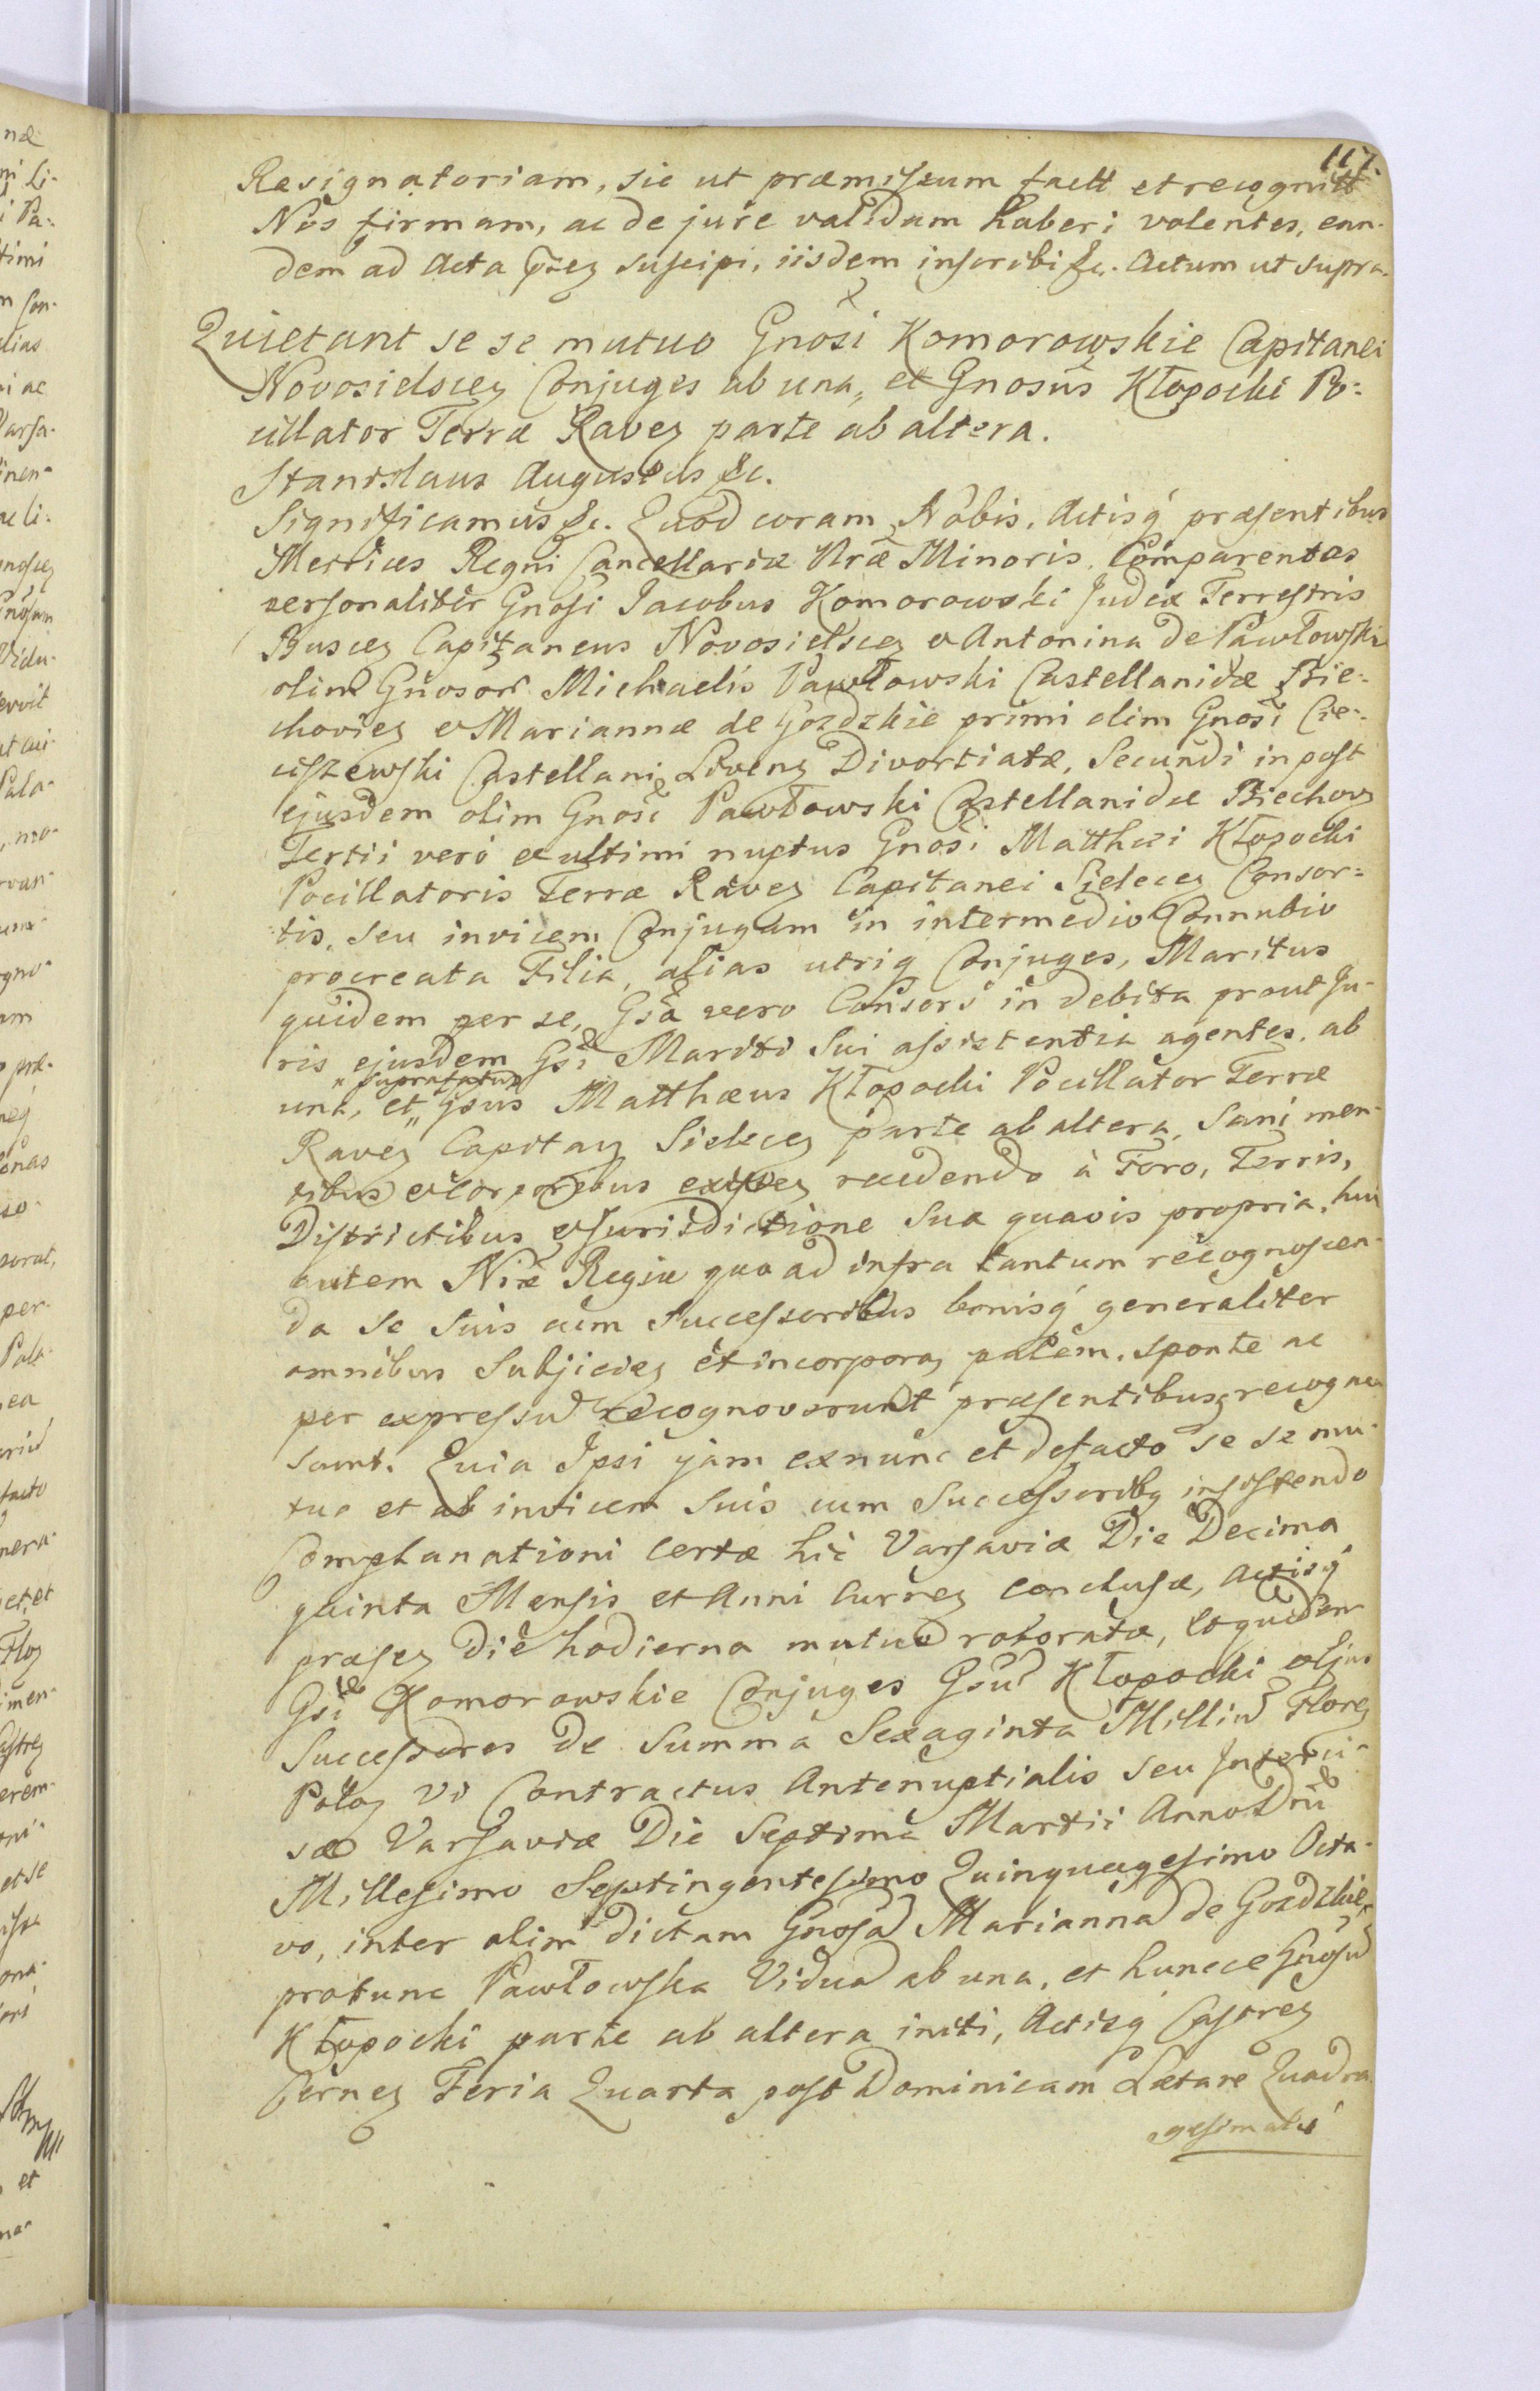 117.
Resignatoriam, sic ut præmissum factt et recognitt
Nos firmam, ac de jure validam haberi volentes, ean-
dem ad Acta pñez suscipi, iisdem inscribi &c. Actum ut supra.
Quietant se se mutuo Gnosi Komorowskie Capitanei
Novosielscez Conjuges ab una, et Gnosus Kłopocki Po-
cillator Terræ Ravez parte ab altera.
Stanislaus Augustus &c.
Significamus &c. Quod coram Nobis, Actisq præsentibus
Metrices Regni Cancellariæ Nræ Minoris, Comparentes
personaliter Gnosi Jacobus Komorowski Judex Terrestris
Buscez Capitaneus Novosielscez & Antonina de Pawłowskie
olim Gnosor Michaelis Pawłowski Castellanidæ Bie-
choviez & Mariannæ de Gozdzkie primi olim Gnosi Cie-
ciszewski Castellani Livenz Divortiatæ, Secundi in post
ejusdem olim Gnosi Pawłowski Castellanidæ Biechovz
Tertii verò & ultimi nuptus Gnosi Matthæi Kłopocki
Pocillatoris Terræ Ravez Capitanei Sielecez Consor-
tis, seu invicem Conjugum in intermedio Connubio
procreata Filia, alias utriq Conjuges, Maritus
quidem per se, Gsa vero Consors in debita prout Ju-
ris ejusdem Gsi Mariti Sui assistentia agentes, ab
una, et Gsus Matthæus Kłopocki Pocillator Terræ
Ravez Capitanz Sielecez parte ab altera, Sani men-
tibus & Corporibus existez recedendo à Foro, Terris,
Districtibus & Jurisdictione Sua quavis propria, huic
autem Nræ Regiæ quo ad infra tantum recognoscen-
da Se Suis cum Successoribus bonisq generaliter
omnibus Subjiciez et incorporaz palem, sponte ac
per expressu recognoverunt præsentibusq recogno
scunt. Quia Ipsi jam exnunc et defacto se se mu-
tuo et ab invicem Suis cum Successoribq insistendo
Complanationi certæ hic Varsaviæ Die Decima
quinta Mensis et Anni Currez conclusæ, Actisq
præsez die hodierna mutuo roboratæ, et quidem
Gsi Komorowskie Conjuges Gsu Kłopocki ejus
Successores de Summa Sexaginta Milliu Florez
Poloz vi Contractus Antenuptialis seu Interci-
sæ Varsaviæ Die Septima Martii Anno Dni
Millesimo Septingentesimo Quinquagesimo Octa-
vo, inter olim dictam Gnosa Marianna de Gozdzkie
protunc Pawłowska Vidua ab una, et huncce Gnosu
Kłopocki parte ab altera initi, Actisq Castrez
Cernez Feria Quarta post Dominicam Lætare Quadra
gesimale